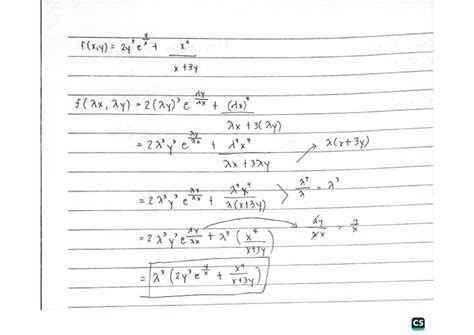 f(x,y) = 2y³ e^(y/x) + x⁴/(x+3y)
f(λx, λy) = 2(λy)³ e^(λy/λx) + (λx)⁴/(λx + 3(λy))
= 2λ³y³ e^(λy/λx) + λ⁴x⁴/(λx + 3λy) → λ(x+3y)
= 2λ³y³ e^(λy/λx) + λ⁴x⁴/(λ(x+3y)) > λ⁴/λ = λ³
= 2λ³y³ e^(λy/λx) + λ³ (x⁴/(x+3y)) λy/λx = y/x
= λ³ (2y³ e^(y/x) + x⁴/(x+3y))
CS